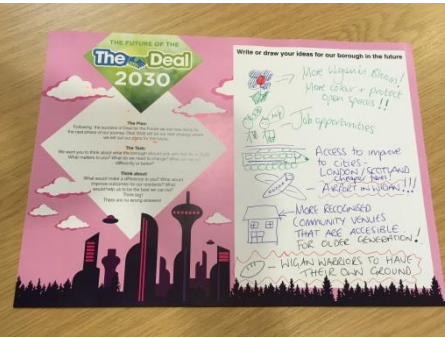 THE FUTURE OF THE
The Deal
2030
The Plan:
Following the success of Deal for the Future we are now looking to
the next phase of our journey. Deal 2030 will be our new strategy where
we will set our plans for the future.
The Task:
We want you to think about what the borough should
What matters to you? What do we need to change? What can we do
differently or better?
Think about!
What would make a difference to you? What would
improve outcomes for our residents? What
would help us to be the best we can be?
Think big!
There are no wrong answers!
Write or draw your ideas for our borough in the future
More Wigan in Bloom!
More colour + protect
open spaces!!
Job opportunities
ACCESS to improve
to cities -
LONDON/SCOTLAND
cheaper
AIRPORT IN WIGAN!!!
MORE RECOGNISED
COMMUNITY VENUES
THAT ARE ACCESIBLE
FOR OLDER GENERATION!
WIGAN WARRIORS TO HAVE
THEIR OWN GROUND